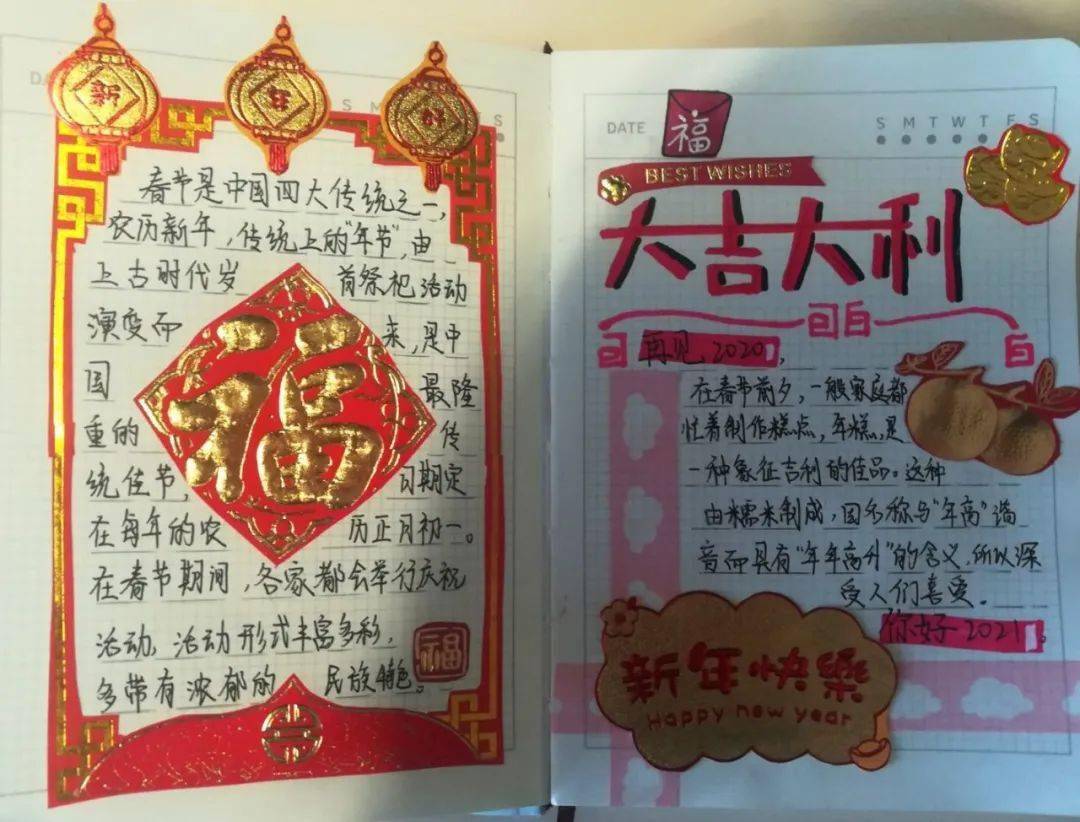 新 年 好
春节是中国四大传统之一,
农历新年,传统上的"年节",由
上古时代岁 首祭祀活动
演变而 来,是中
国 最隆
重的 传
统佳节, 日期定
在每年的农 历正月初一。
在春节期间,各家都会举行庆祝
活动,活动形式丰富多彩,
多带有浓郁的 民族特色。
福
福
DATE
S M T W T F S
福
BEST WISHES
大吉大利
再见 2020,
在春节前夕,一般家庭都
忙着制作糕点,年糕,是
一种象征吉利的佳品。这种
由糯米制成,因名称与"年高"谐
音而具有"年年高升"的含义,所以深
受人们喜爱。
你好 2021。
新年快樂
Happy new year